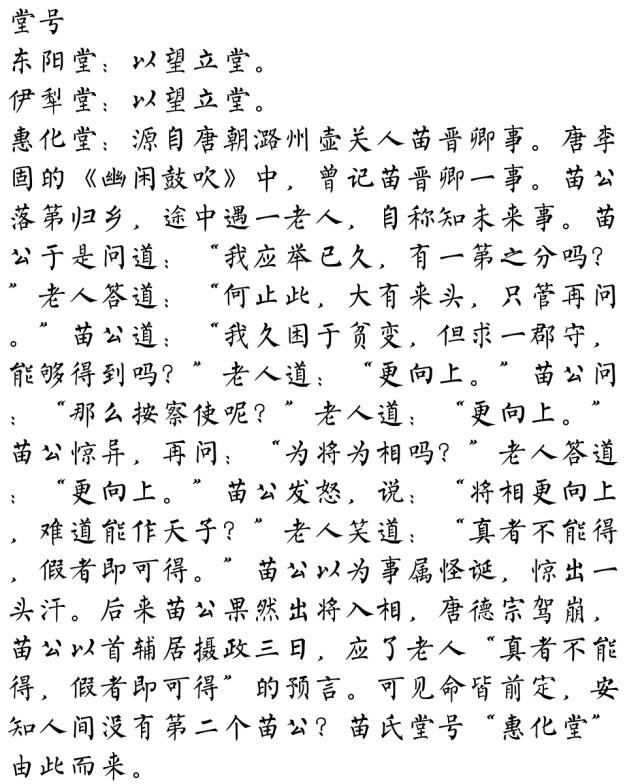 堂号
东阳堂：以望立堂。
伊犁堂：以望立堂。
惠化堂：源自唐朝潞州壶关人苗晋卿事。唐李
固的《幽闲鼓吹》中，曾记苗晋卿一事。苗公
落第归乡，途中遇一老人，自称知未来事。苗
公于是问道：“我应举已久，有一第之分吗？
”老人答道：“何止此，大有来头，只管再问
。”苗公道：“我久困于贫变，但求一郡守，
能够得到吗？”老人道：“更向上。”苗公问
：“那么按察使呢？”老人道：“更向上。”
苗公惊异，再问：“为将为相吗？”老人答道
：“更向上。”苗公发怒，说：“将相更向上
，难道能作天子？”老人笑道：“真者不能得
，假者即可得。”苗公以为事属怪诞，惊出一
头汗。后来苗公果然出将入相，唐德宗驾崩，
苗公以首辅居摄政三日，应了老人“真者不能
得，假者即可得”的预言。可见命皆前定，安
知人间没有第二个苗公？苗氏堂号“惠化堂”
由此而来。